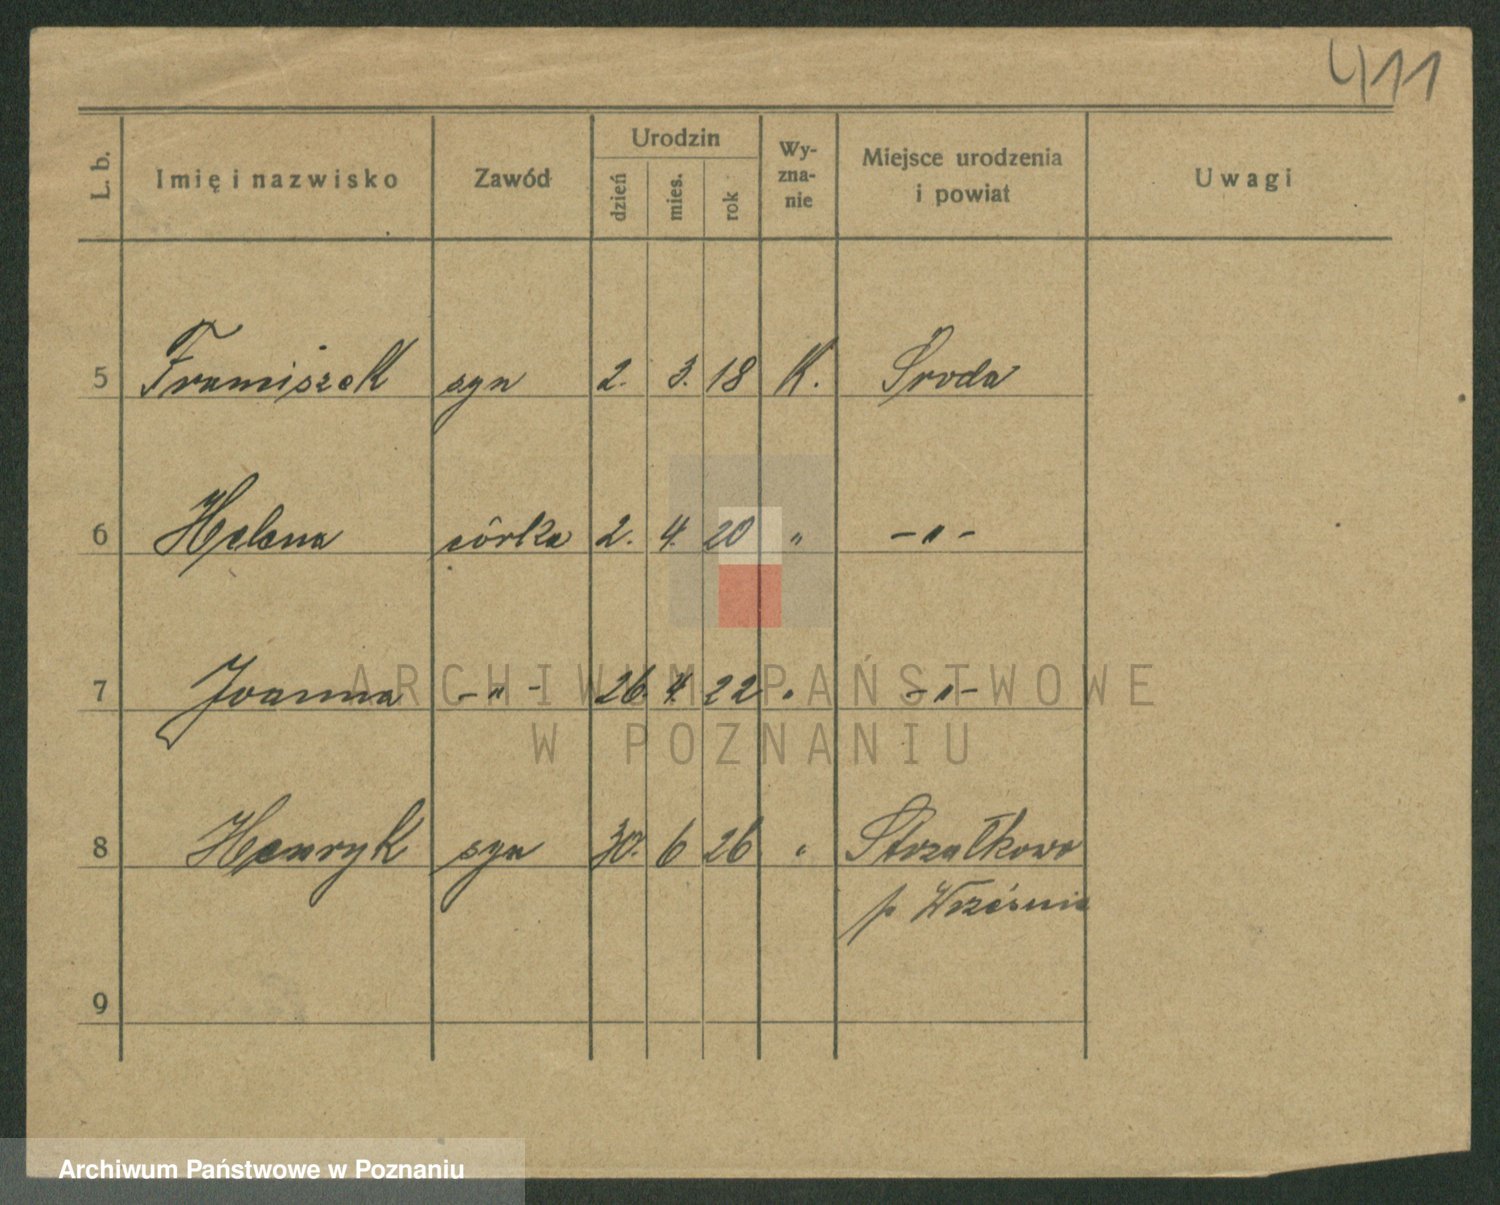 411
L. b. Imię i nazwisko Zawód Urodzin Wy-zna-nie Miejsce urodzenia i powiat Uwagi
dzień mies. rok
5 Franciszek syn 2. 3. 18 K. Środa
6 Helena córka 2. 4. 20 " -"-
7 Joanna -"- 26. 4. 22 " -"-
8 Henryk syn 30. 6 26 " Strzałkowo
p. Września
9
ARCHIWUM PAŃSTWOWE
W POZNANIU
Archiwum Państwowe w Poznaniu